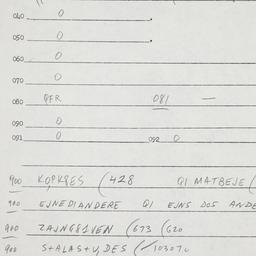 040 0
050 0
060 0
070 0
080 QFR 081 —
090 0
091 0 092 0
900 KOPKPES (428 QI MATBEJE (
900 EJNEDIANDERE QI EJNS DOS ANDE
900 ZAJNG81VEN (673 (620
900 S+ALAS+U,DES (